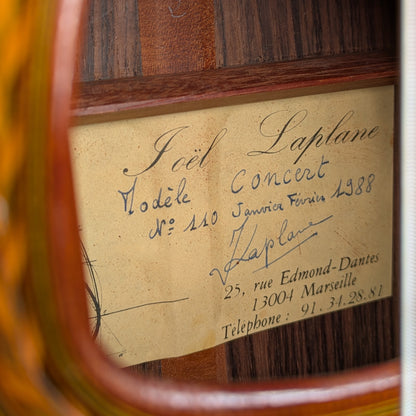 Joël Laplane
Modèle Concert
No 110 Janvier Février 1988
J Laplane
25, rue Edmond-Dantès
13004 Marseille
Téléphone : 91.34.28.81